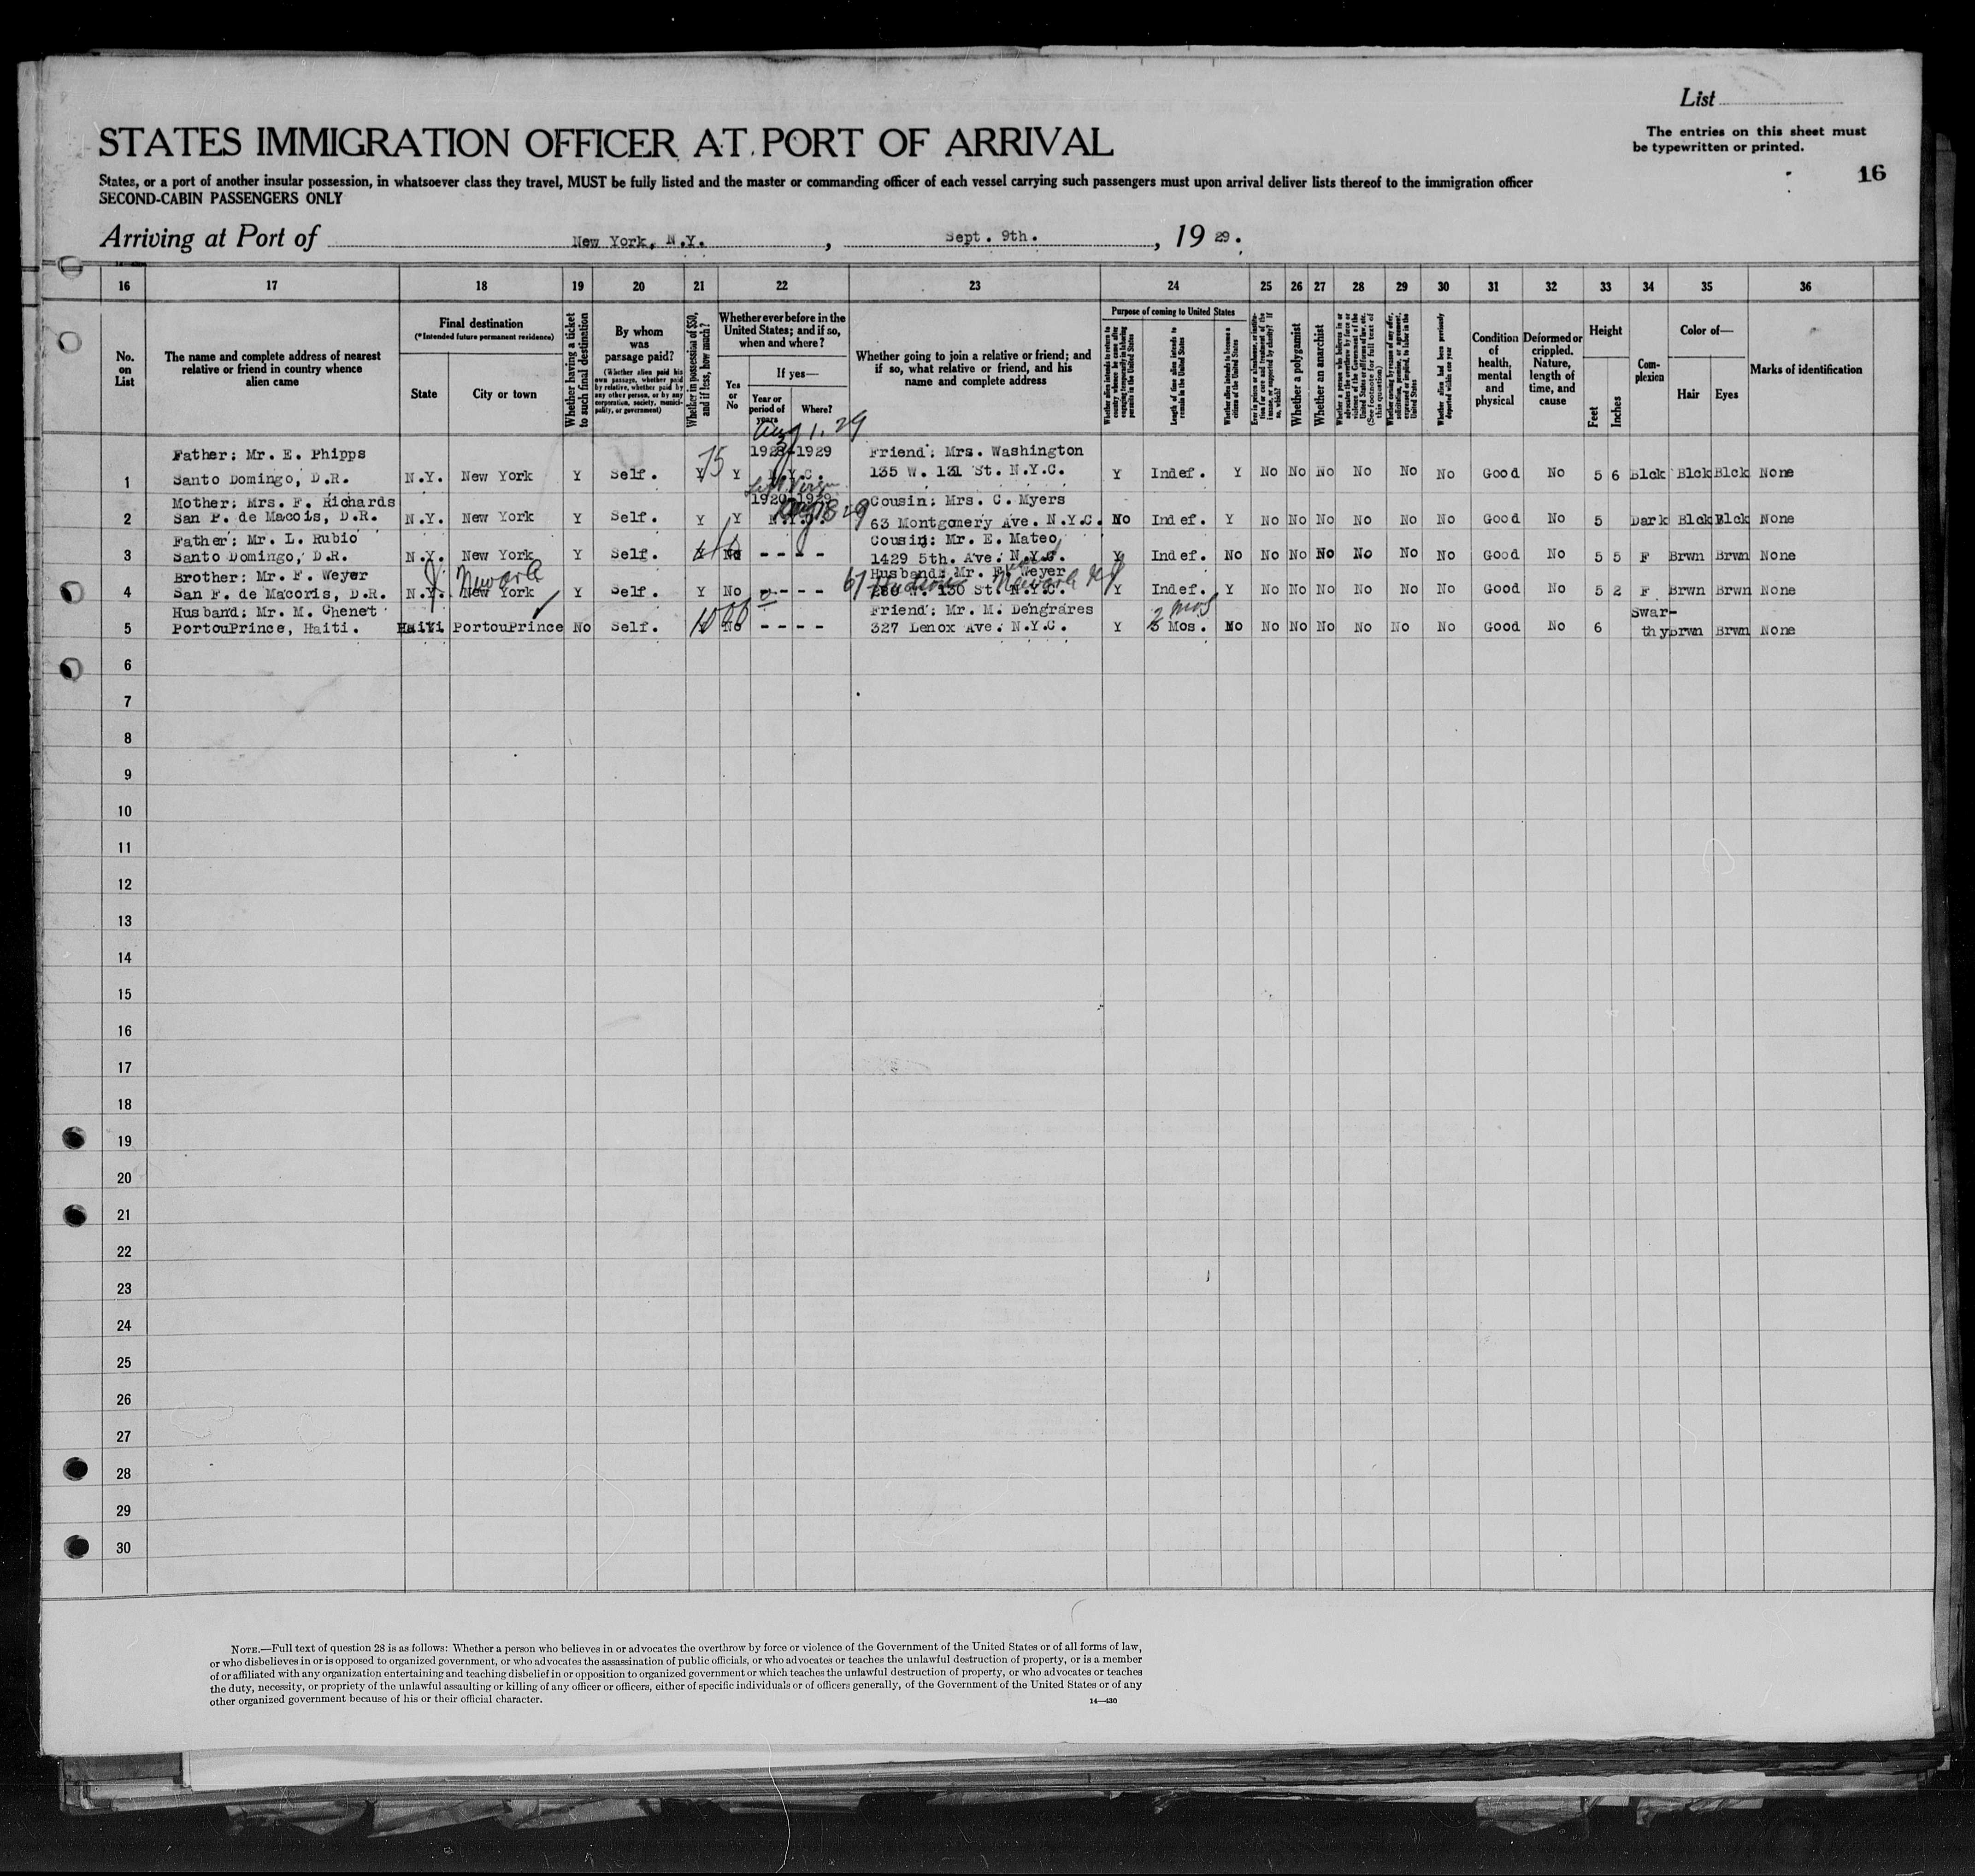 List
The entries on this sheet must
be typewritten or printed.
16
STATES IMMIGRATION OFFICER AT PORT OF ARRIVAL
States, or a port of another insular possession, in whatsoever class they travel, MUST be fully listed and the master or commanding officer of each vessel carrying such passengers must upon arrival deliver lists thereof to the immigration officer
SECOND-CABIN PASSENGERS ONLY
Arriving at Port of New York, N.Y. , Sept. 9th. , 19 29.
16 17 18 19 20 21 22 23 24 25 26 27 28 29 30 31 32 33 34 35 36
No. on List
The name and complete address of nearest relative or friend in country whence alien came
Final destination
(*Intended future permanent residence)
State
City or town
Whether having a ticket to such final destination
By whom was passage paid?
(Whether alien paid his own passage, whether paid by relative, whether paid by any other person, or by any corporation, society, municipality, or government)
Whether in possession of $50, and if less, how much?
Whether ever before in the United States; and if so, when and where?
Yes or No
If yes—
Year or period of years
Where?
Whether going to join a relative or friend; and if so, what relative or friend, and his name and complete address
Purpose of coming to United States
Whether alien intends to return to country whence he came after engaging temporarily in laboring pursuits in the United States
Length of time alien intends to remain in the United States
Whether alien intends to become a citizen of the United States
Whether a polygamist
Whether an anarchist
Whether alien had been previously deported within one year
Condition of health, mental and physical
Deformed or crippled. Nature, length of time, and cause
Height
Feet
Inches
Complexion
Color of—
Hair
Eyes
Marks of identification
Aug 1, 29
Father; Mr. E. Phipps 1928-1929 Friend; Mrs. Washington
1 Santo Domingo, D.R. N.Y. New York Y Self. Y 75 Y N.Y.C. 135 W. 131 St. N.Y.C. Y Indef. Y No No No No No No Good No 5 6 Blck Blck Blck None
Mother; Mrs. F. Richards 1920-1929 Cousin; Mrs. C. Myers
2 San P. de Macois, D.R. N.Y. New York Y Self. Y Y N.Y.C. 63 Montgomery Ave. N.Y.C. No Indef. Y No No No No No No Good No 5 Dark Blck Blck None
Father; Mr. L. Rubio Cousin; Mr. E. Mateo
3 Santo Domingo, D.R. N.Y. New York Y Self. No - - - - 1429 5th. Ave. N.Y.C. Y Indef. No No No No No No No Good No 5 5 F Brwn Brwn None
Brother; Mr. F. Weyer Newark Husband; Mr. F. Weyer
4 San P. de Macoris, D.R. N.Y. New York Y Self. Y No - - - - 67 Hudson Newark NJ 130 St. N.Y.C. Y Indef. Y No No No No No No Good No 5 2 F Brwn Brwn None
Husband; Mr. M. Chenet Friend; Mr. M. Dengrares 2 mos Swar-
5 PortouPrince, Haiti. Haiti PortouPrince No Self. No - - - - 327 Lenox Ave. N.Y.C. Y 3 Mos. No No No No No No No Good No 6 thy Brwn Brwn None
6
7
8
9
10
11
12
13
14
15
16
17
18
19
20
21
22
23
24
25
26
27
28
29
30
NOTE.—Full text of question 28 is as follows: Whether a person who believes in or advocates the overthrow by force or violence of the Government of the United States or of all forms of law,
or who disbelieves in or is opposed to organized government, or who advocates the assassination of public officials, or who advocates or teaches the unlawful destruction of property, or is a member
of or affiliated with any organization entertaining and teaching disbelief in or opposition to organized government or which teaches the unlawful destruction of property, or who advocates or teaches
the duty, necessity, or propriety of the unlawful assaulting or killing of any officer or officers, either of specific individuals or of officers generally, of the Government of the United States or of any
other organized government because of his or their official character.
14—430